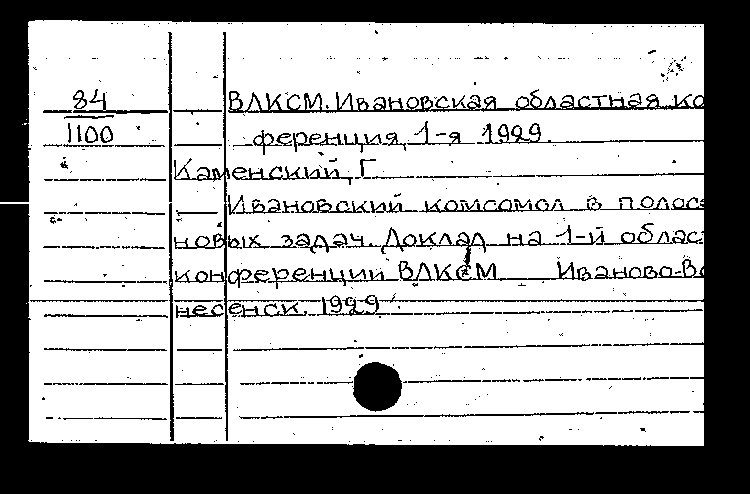 84
1100
ВЛКСМ. Ивановская областная ко
ференция, 1-я 1929.
Каменский, Г.
Ивановский комсомол в полос
новых задач. Доклад на 1-й облас
конференции ВЛКСМ Иваново-Во
несенск. 1929.